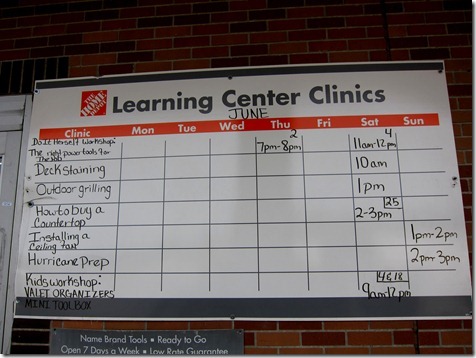 THE HOME DEPOT Learning Center Clinics
JUNE
Clinic Mon Tue Wed Thu Fri Sat Sun
Do It Herself Workshop: 2 4
The right power tools for the Job 7pm-8pm 11am-12pm
Deck Staining 10am
Outdoor grilling 1pm
How to buy a 25
Countertop 2-3pm
Installing a 1pm-2pm
Ceiling fan
Hurricane Prep 2pm-3pm
Kids workshop: 4&18
VALET ORGANIZERS 9am-12pm
MINI TOOL BOX
Name Brand Tools • Ready to Go
Open 7 Days a Week • Low Rate Guarantee